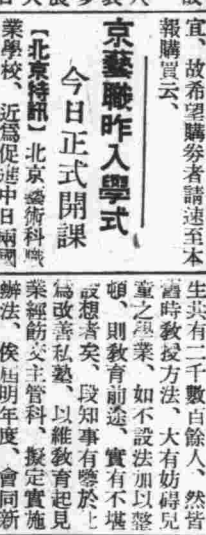 宜、故希望購券者請速至本
報購買云、
京藝職昨入學式
今日正式開課
【北京特訊】北京藝術科職
業學校、近爲促進中日兩國
生共有二千數百餘人、然皆
舊時教授方法、大有妨碍兒
童之學業、如不設法加以整
頓、則教育前途、實有不堪
設想者矣、段知事有鑒於上
爲改善私塾、以維教育起見
業經飭交主管科、擬定實施
辦法、俟屆明年度、會同新